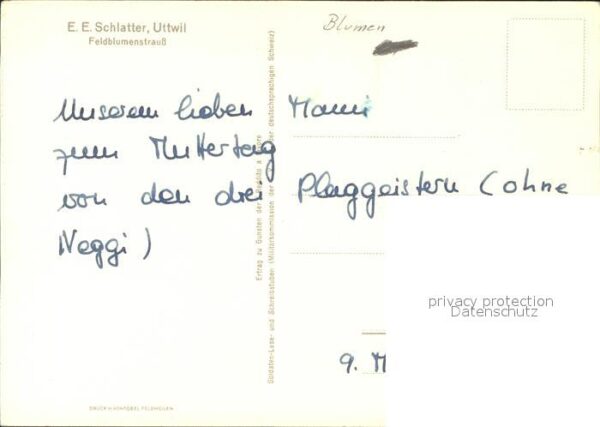 E. E. Schlatter, Uttwil
Feldblumenstrauß
Blumen
Unserem lieben Mami
zum Muttertag
von den drei Plaggeistern (ohne
Neggi)
Ertrag zu Gunsten der
Soldaten-Lese- und Schreibstuben (Militärkommission der der deutschsprachigen Schweiz)
9. M
privacy protection
Datenschutz
DRUCK H. FELDMEILEN